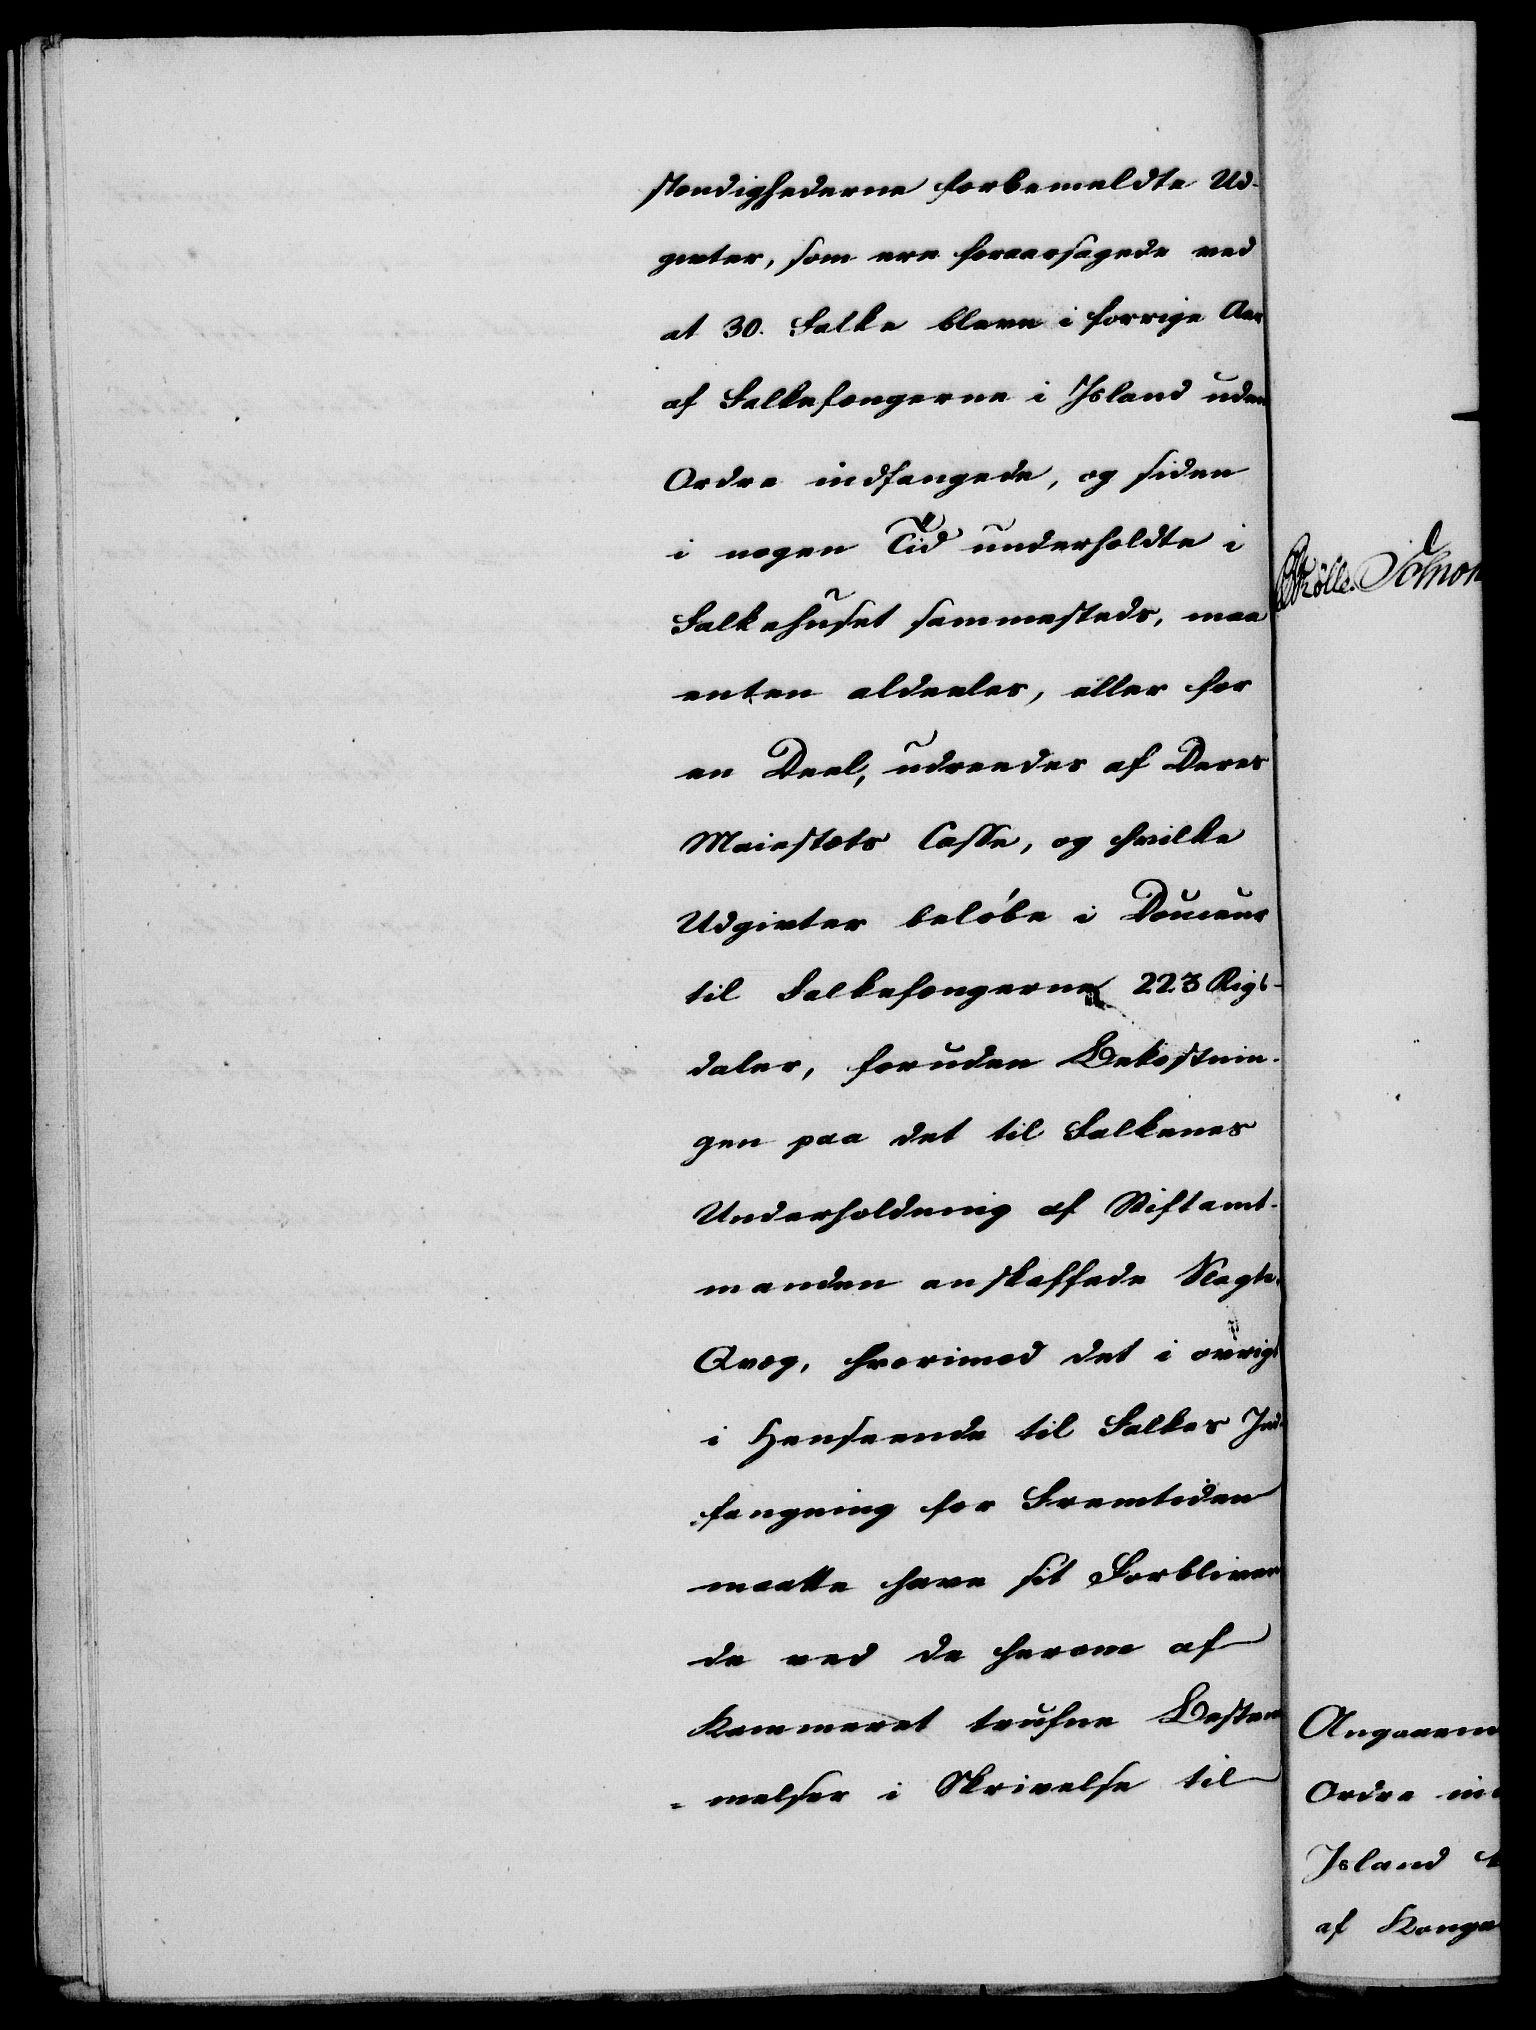 stændighederne forbemeldte Ud-
givter, som ere foraarsagede ved
at 30. Falke bleve i forrige Aar
af Falkefængerne i Jsland uden
Ordre indfangede, og siden
i nogen Tid underholdte i
Falkehuset sammesteds, maa
enten aldeeles, eller for
en Deel, udreedes af Deres
Maiestæts Casse, og hvilke
Udgivter beløbe i Douceur
til Falkefængerne 223 Rigs-
daler, foruden Bekostnin-
gen paa det til Falkenes
Underholdning af Stiftamt-
manden anskaffede Slagte-
Qvæg, hvorimod det i øvrigt
i Henseende til Falkes Ind-
fangning for Fremtiden
maatte have sit Forbliven-
de ved de herom af
Kammeret trufne Bestem
-melser i Skrivelse til
Angaaen
Ordre in
Jsland
af Konge